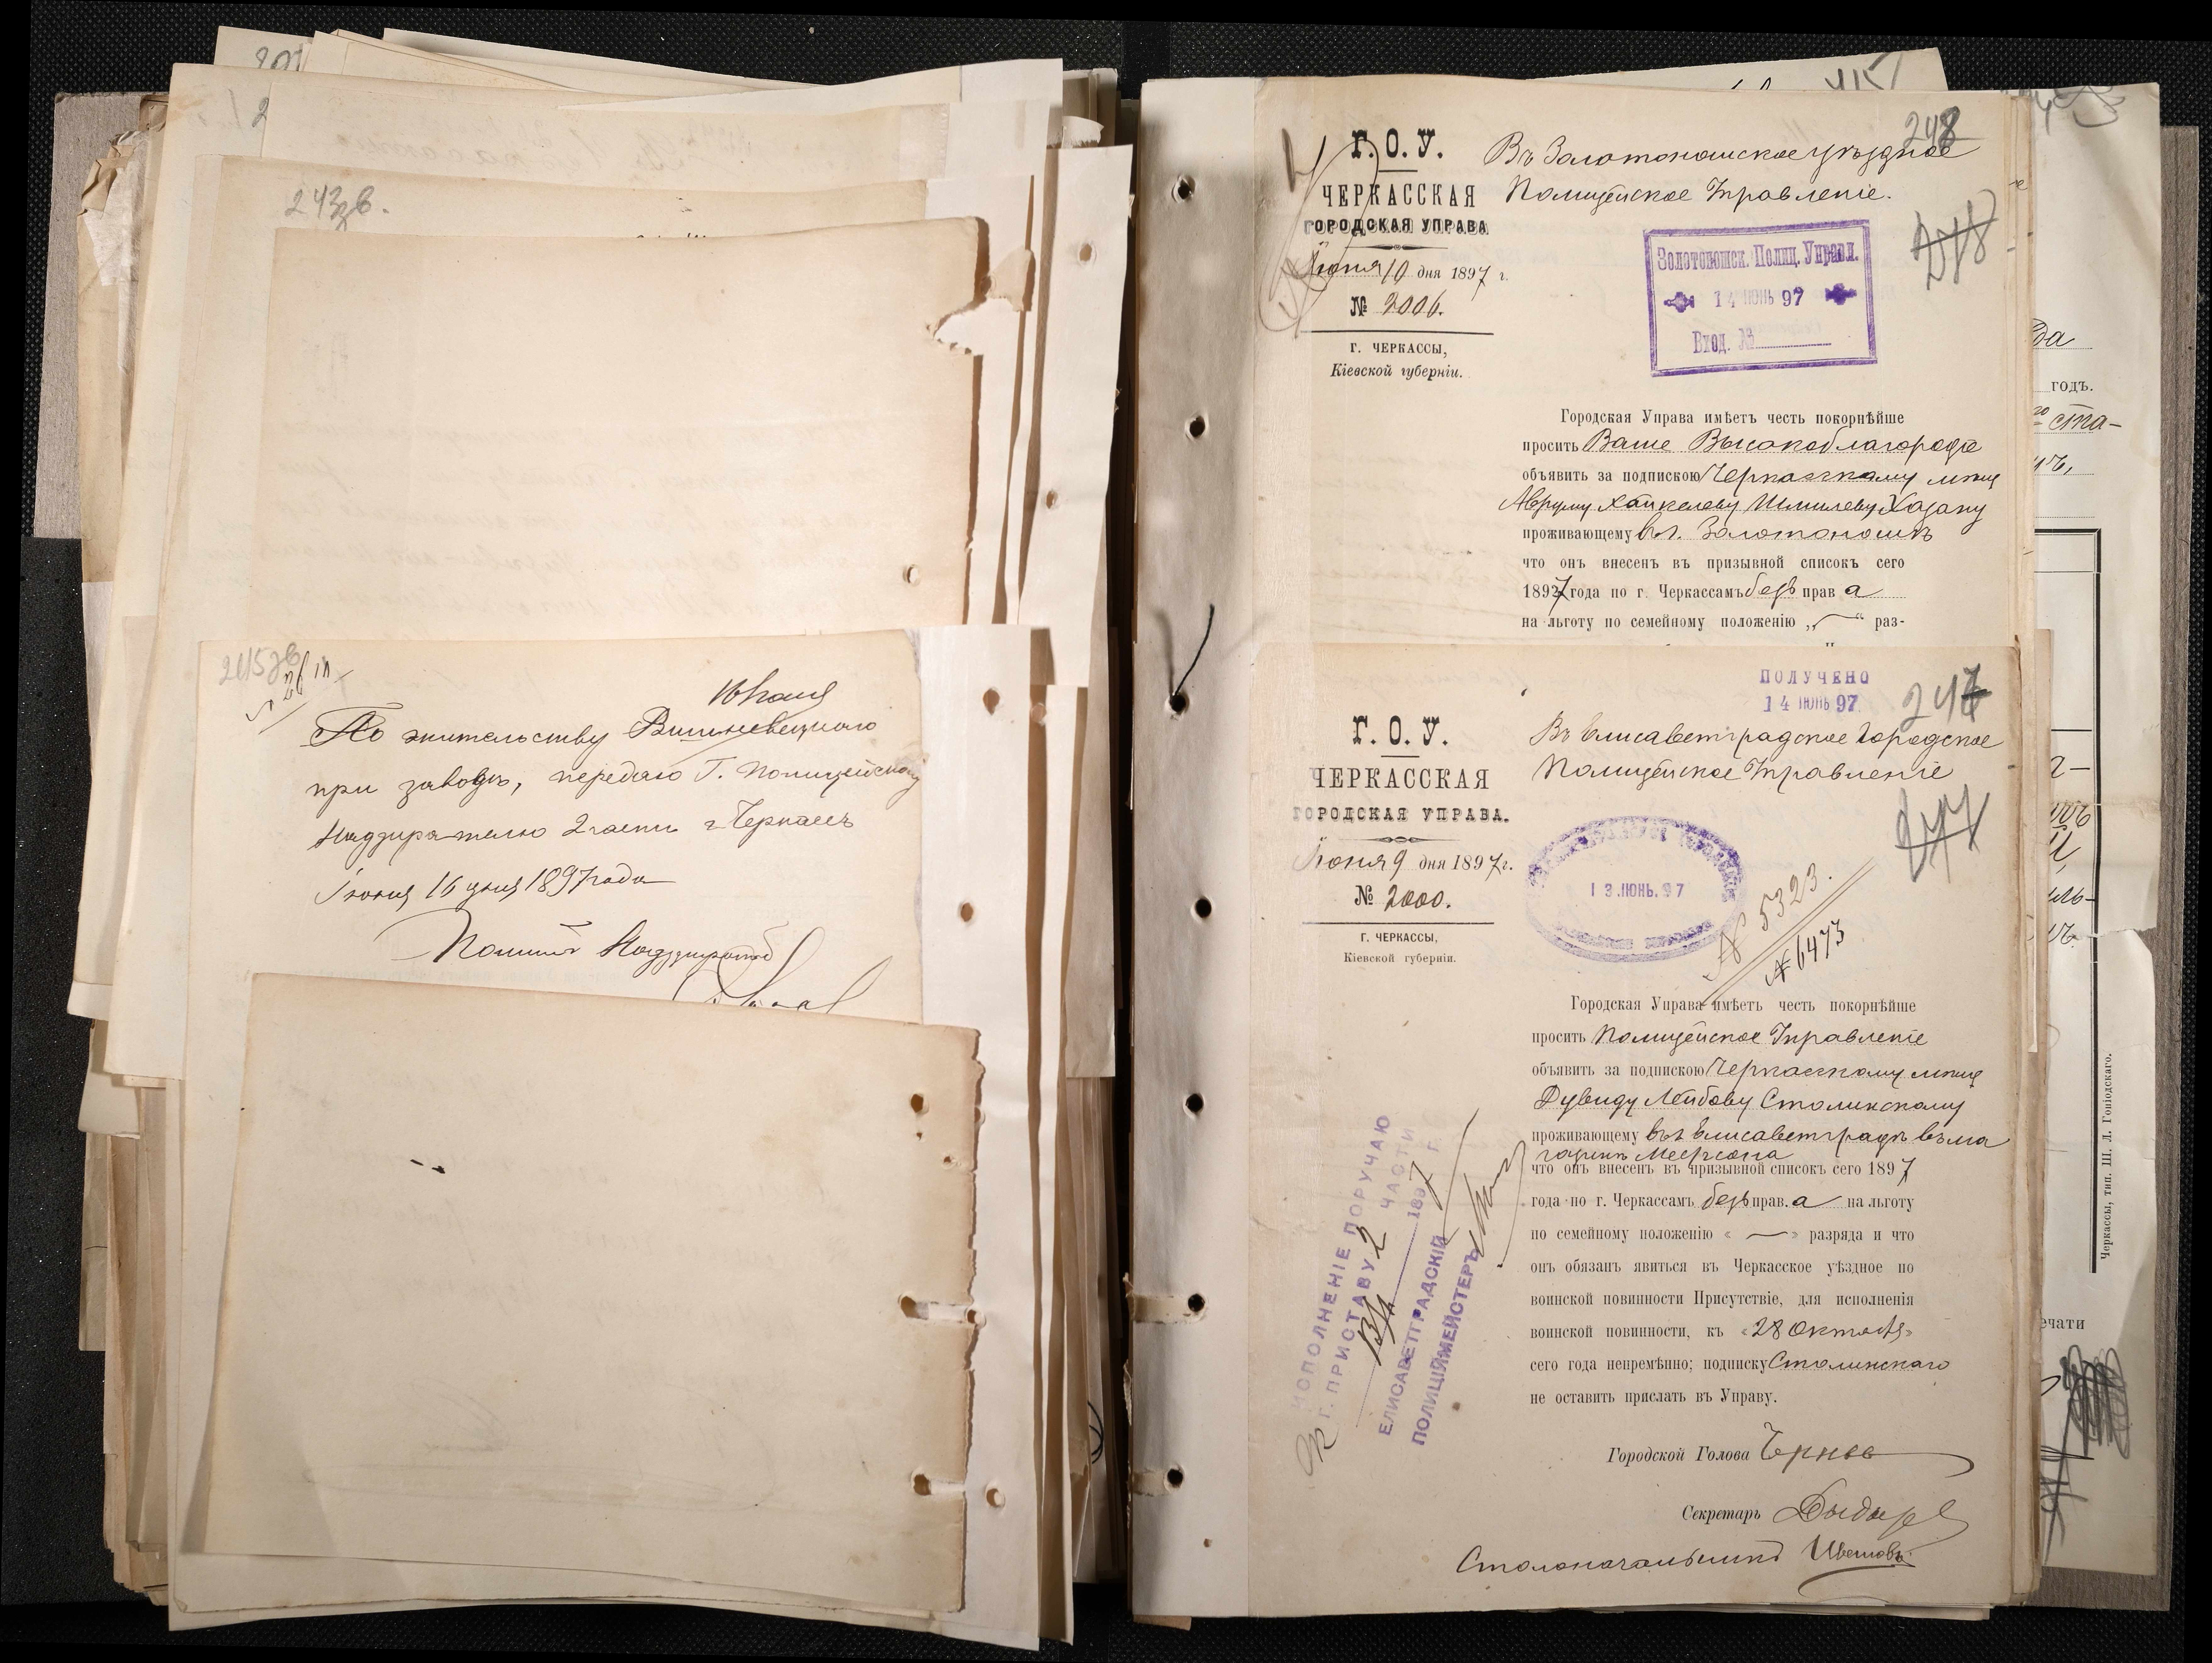 243зв.
245зв
По жительству Вишневецкаго
при заводѣ, передаю Г. Полицейскому
Надзирателю 2 части г. Черкассъ
Іюня 16 дня 1897 года
Полиц. Надзиратель
248
Г. О. У.
ЧЕРКАССКАЯ
ГОРОДСКАЯ УПРАВА
Іюня 10 дня 1897 г.
№ 2006.
Г. ЧЕРКАССЫ,
Кіевской губерніи.
Въ Золотоношское уѣздное
Полицейское Управленіе.
Золотоношск. Полиц. Управл.
14 ІЮНЬ 97
Вход. №
Городская Управа имѣетъ честь покорнѣйше
просить Ваше Высокоблагородіе
объявить за подпискою Черкасскому мѣщ
Авруму Хайкелеву Шмилеву Хазану
проживающему въ г. Золотоношѣ
что онъ внесенъ въ призывной списокъ сего
1897 года по г. Черкассамъ безъ права
на льготу по семейному положенію „—“ раз-
ПОЛУЧЕНО
14 ІЮНЬ 97
247
Г. О. У.
ЧЕРКАССКАЯ
ГОРОДСКАЯ УПРАВА.
Іюня 9 дня 1897 г.
№ 2000.
Г. ЧЕРКАССЫ,
Кіевской губерніи.
Въ Елисаветградское Городское
Полицейское Управленіе
247
13 .ІЮНЬ. 97
№ 5323.
№ 6473
Городская Управа имѣетъ честь покорнѣйше
просить Полицейское Управленіе
объявить за подпискою Черкасскому мѣщ
Дувиду Лейбову Столинскому
проживающему въ г. Елисаветградѣ въ ма
газинѣ Меерсона
что онъ внесенъ въ призывной списокъ сего 1897
года по г. Черкассамъ безъ права на льготу
по семейному положенію « — » разряда и что
онъ обязанъ явиться въ Черкасское уѣздное по
воинской повинности Присутствіе, для исполненія
воинской повинности, къ «28 Октября»
сего года непремѣнно; подписку Столинскаго
не оставить прислать въ Управу.
Городской Голова
Секретарь
Столоначальникъ
ИСПОЛНЕНІЕ ПОРУЧАЮ
Г. ПРИСТАВУ 2 ЧАСТИ
1897 Г.
ЕЛИСАВЕТГРАДСКІЙ
ПОЛИЦІЙМЕЙСТЕРЪ
да
годъ.
ста-
ечати
Черкассы, тип. Ш. Л. Гоніодскаго.